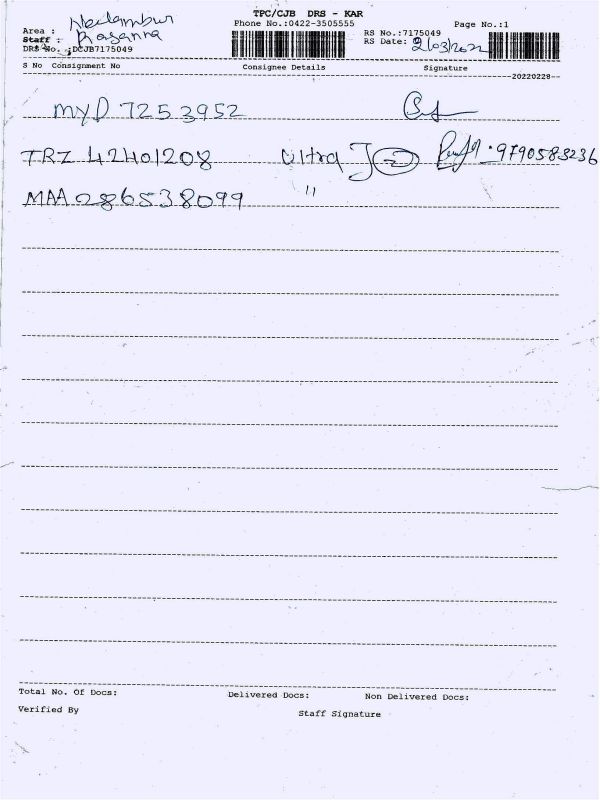 TPC/CJB DRS - KAR
Phone No.:0422-3505555
Page No.:1
Area : Neelambur
Staff : Prasanna
DRS No. :DCJB7175049
RS No.:7175049
RS Date: 2/03/2022
S No Consignment No Consignee Details Signature
20220228
MYD 7253952
TRZ 42401208 Ultra J 2 9790583236
MAA 286538099 "
Total No. Of Docs: Delivered Docs: Non Delivered Docs:
Verified By Staff Signature